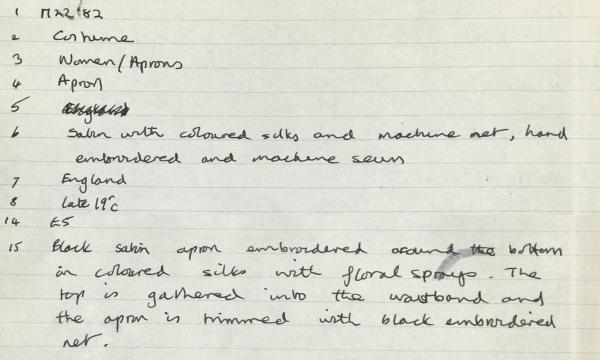 1 M22'82
2 Costume
3 Women/Aprons
4 Apron
5
6 Satin with coloured silks and machine net, hand
embroidered and machine sewn
7 England
8 late 19thc
14 £5
15 Black satin apron embroidered around the bottom
in coloured silks with floral sprays. The
top is gathered into the waistband and
the apron is trimmed with black embroidered
net.